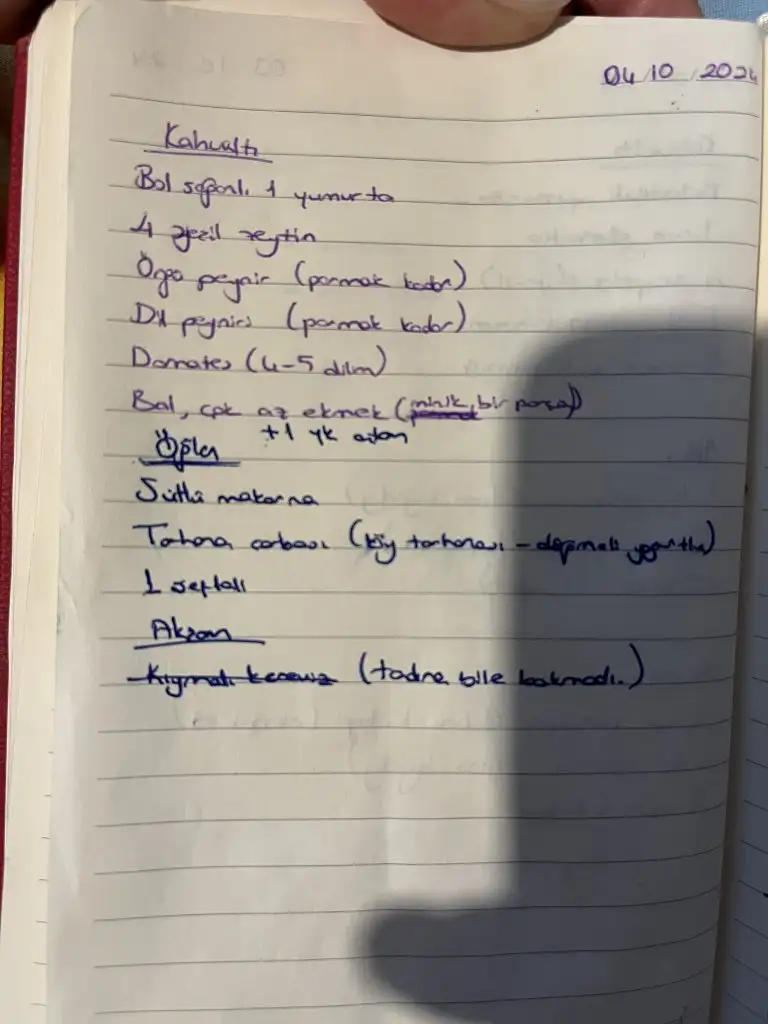 04/10/2024
Kahvaltı
Bol soğanlı 1 yumurta
4 yeşil zeytin
Örgü peynir (parmak kadar)
Dil peyniri (parmak kadar)
Domates (4-5 dilim)
Bal, çok az ekmek (minik bir parça)
+1 yk
Öğlen
Sütlü makarna
Tarhana çorbası (köy tarhanası - doğmalı yoğurtlu)
1 şeftali
Akşam
Kıymalı kereviz (tadına bile bakmadı.)